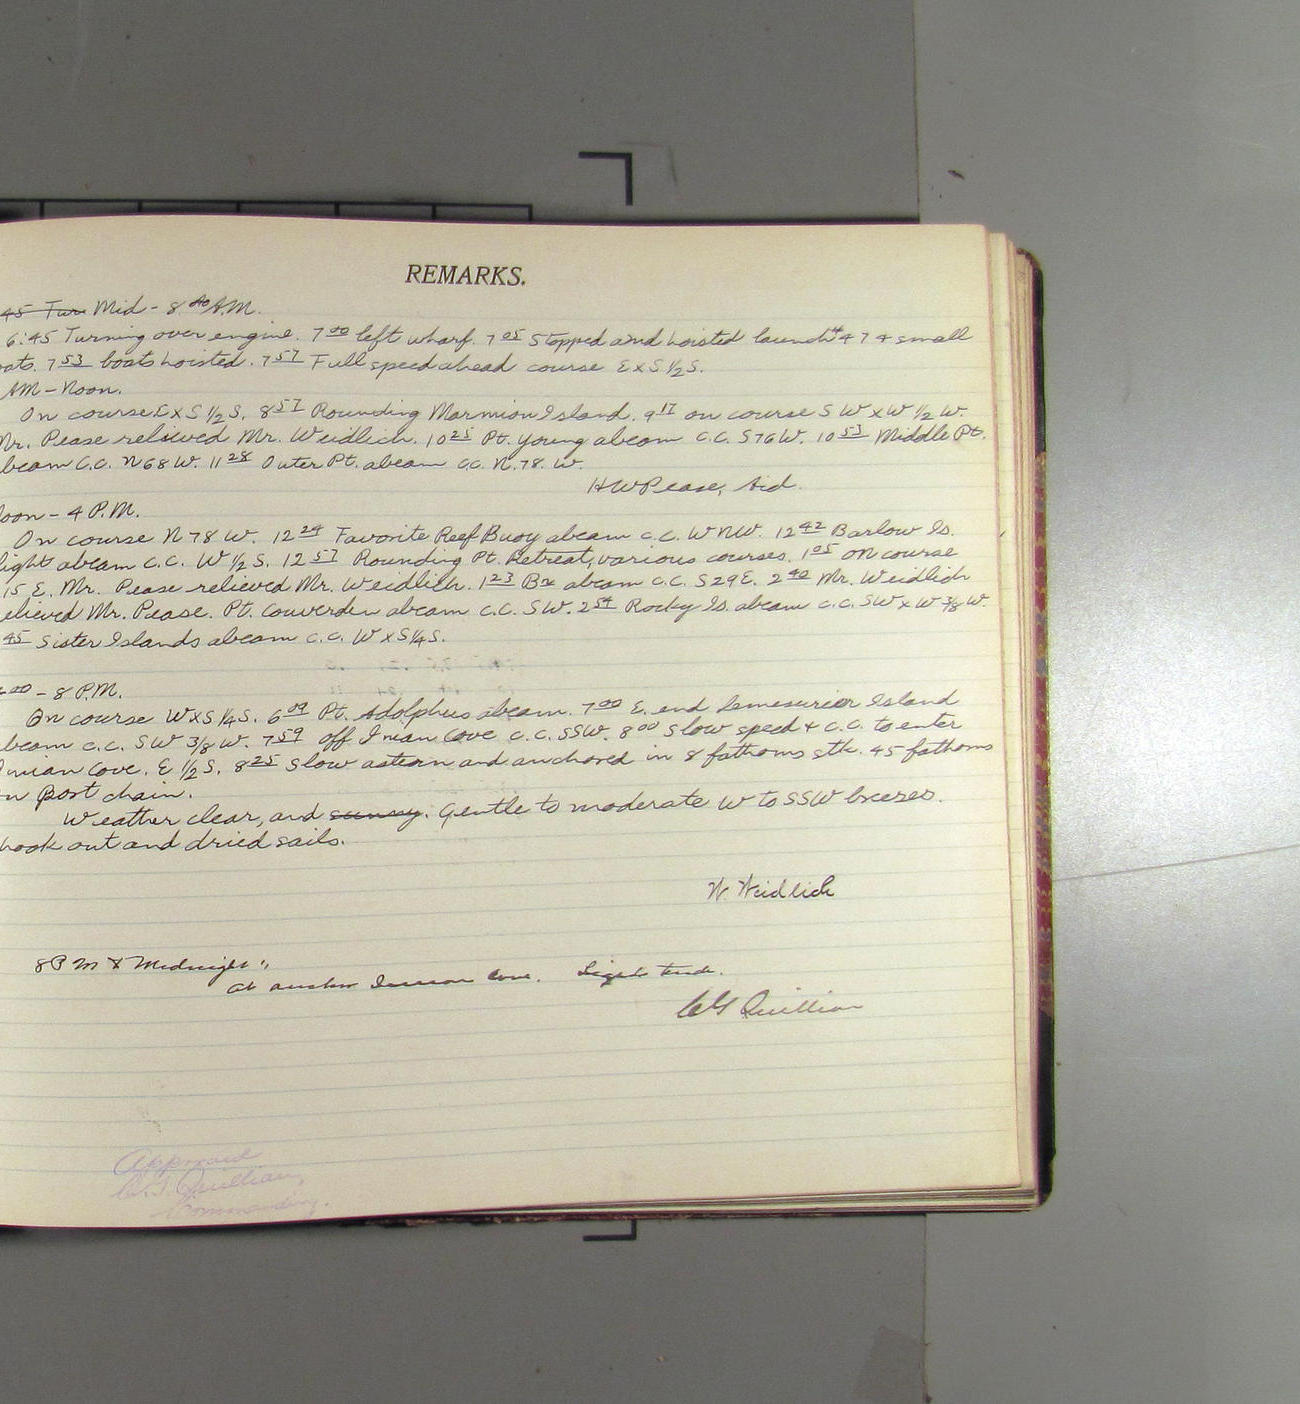 REMARKS.
45 Turn Mid - 8 00 A.M.
6:45 Turning over engine. 7 00 left wharf. 7 05 Stopped and hoisted launch # 47 + small
oats. 7 53 boats hoisted. 7 57 Full speed ahead course E x S 1/2 S.
AM - Noon.
On course E x S 1/2 S. 8 57 Rounding Marmion Island. 9 17 on course S W x W 1/2 W.
Mr. Pease relieved Mr. Weidlich. 10 25 Pt. Young abeam C.C. S 76 W. 10 53 Middle Pt.
beam C.C. N 68 W. 11 28 Outer Pt. abeam C.C. N. 78. W.
H W Pease, Aid.
oon - 4 P.M.
On course N 78 W. 12 24 Favorite Reef Buoy abeam C.C. W N W. 12 42 Barlow Is.
light abeam C.C. W 1/2 S. 12 57 Rounding Pt. Retreat, various courses. 1 05 on course
15 E. Mr. Pease relieved Mr. Weidlich. 1 23 abeam C.C. S 29 E. 2 40 Mr. Weidlich
elieved Mr. Pease. Pt. Couverden abeam C.C. S W. 2 54 Rocky Is. abeam C.C. S W x W 3/8 W.
45 Sister Islands abeam C.C. W x S 1/4 S.
00 - 8 P.M.
On course W x S 1/4 S. 6 09 Pt. Adolphus abeam. 7 00 E. end Lemesurier Island
beam C.C. S W 3/8 W. 7 59 off Inian Cove C.C. SSW. 8 00 Slow speed + C.C. to enter
Inian Cove. E 1/2 S. 8 25 Slow astern and anchored in 8 fathoms stk. 45 fathoms
n Port chain.
Weather clear, and sunny. Gentle to moderate W to SSW breezes.
hook out and dried sails.
W. Weidlich
8 P M to Midnight:
At anchor Inian Cove. Light
C G Quillian
Approved
C. G. Quillian,
Commanding.